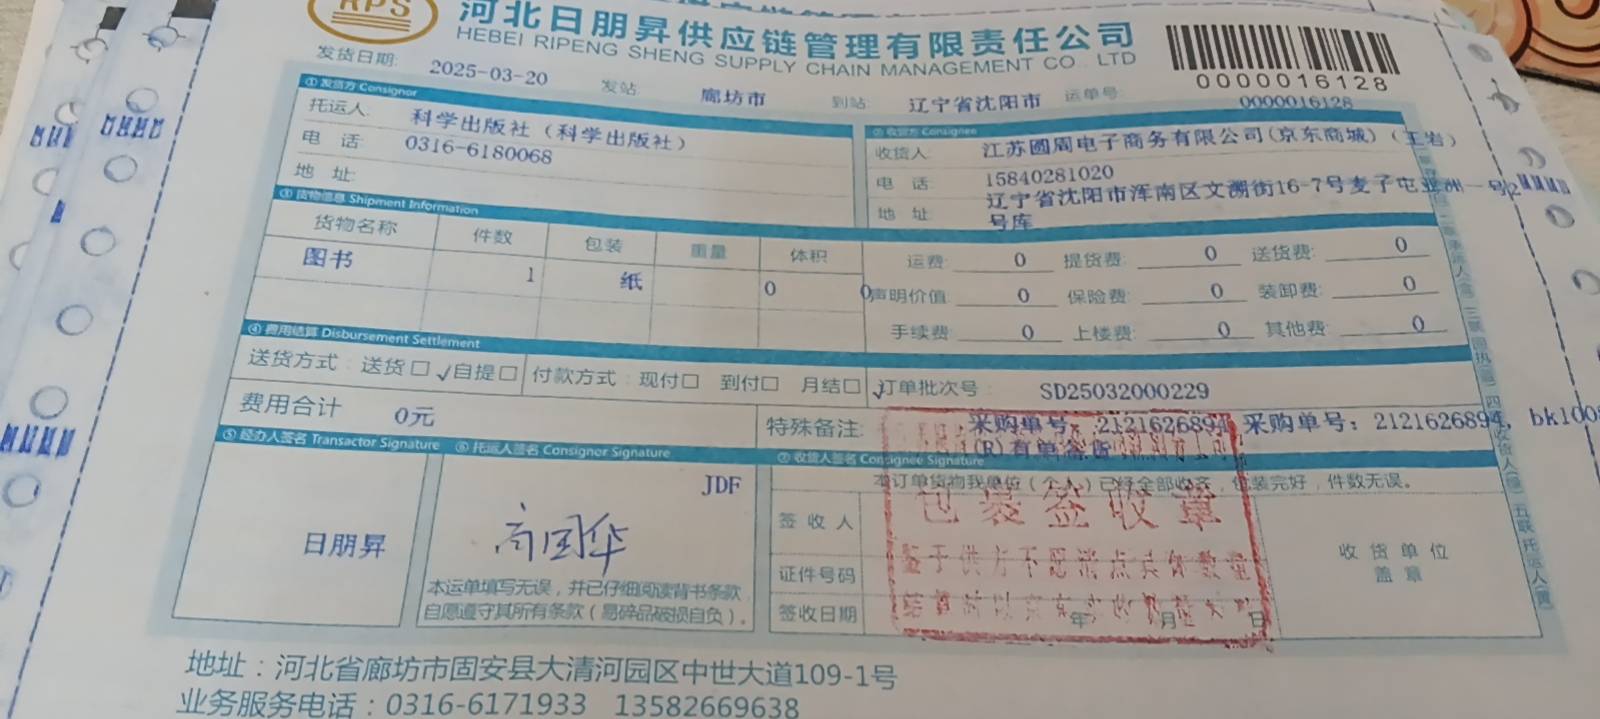 RPS
河北日朋昇供应链管理有限责任公司
HEBEI RIPENG SHENG SUPPLY CHAIN MANAGEMENT CO., LTD
0000016128
发货日期: 2025-03-20 发站: 廊坊市 到站: 辽宁省沈阳市 运单号: 0000016128
① 发货方 Consignor
托运人: 科学出版社(科学出版社)
电 话: 0316-6180068
地 址:
② 收货方 Consignee
收货人: 江苏圆周电子商务有限公司(京东商城)(王岩)
电 话: 15840281020
地 址: 辽宁省沈阳市浑南区文溯街16-7号麦子屯亚洲一号2
号库
③ 货物信息 Shipment Information
货物名称 件数 包装 重量 体积
图书 1 纸 0 0
运费: 0 提货费: 0 送货费: 0
声明价值: 0 保险费: 0 装卸费: 0
手续费: 0 上楼费: 0 其他费: 0
④ 费用结算 Disbursement Settlement
送货方式: 送货□ √自提□ 付款方式: 现付□ 到付□ 月结□√ 订单批次号: SD25032000229
费用合计 0元
特殊备注: 采购单号: 2121626894, 采购单号: 2121626894, bk100
(R)有单
⑤ 经办人签名 Transactor Signature
日朋昇
⑥ 托运人签名 Consignor Signature
JDF
高国华
本运单填写无误,并已仔细阅读背书条款,
自愿遵守其所有条款(易碎品破损自负)。
⑦ 收货人签名 Consignee Signature
本订单货物我单位(个人)已经全部收齐,包装完好,件数无误。
签 收 人
证件号码
签收日期 年 月 日
收 货 单 位
盖 章
包装签收章
鉴于供方不愿清点具体数量
地址:河北省廊坊市固安县大清河园区中世大道109-1号
业务服务电话:0316-6171933 13582669638